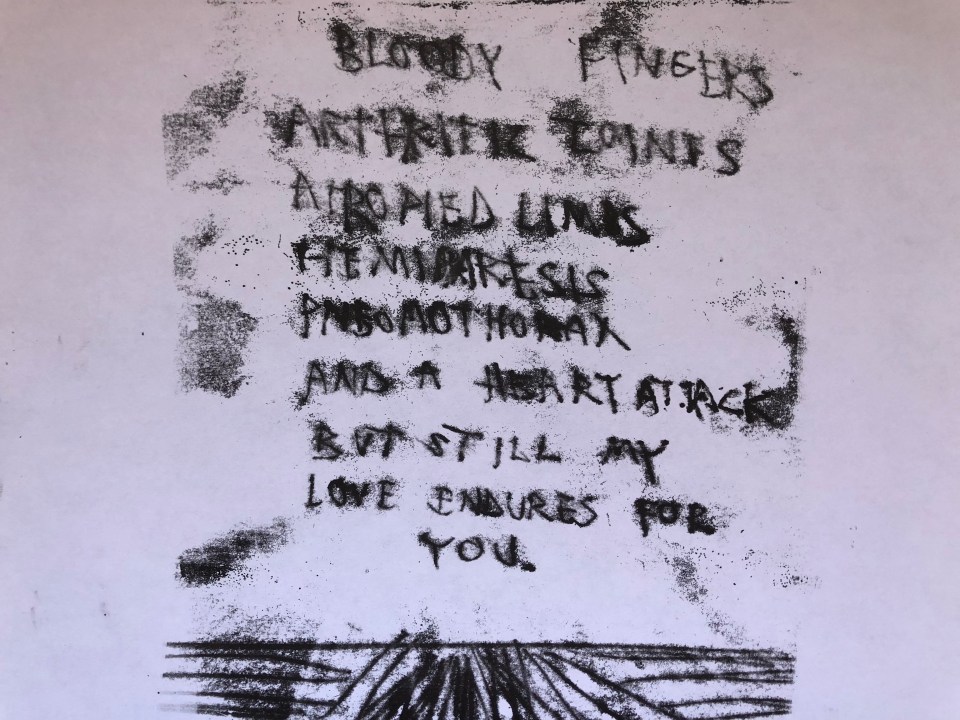 BLOODY FINGERS
ARTHRITIC JOINTS
ATROPIED LIMBS
HEMIPARESIS
PNEOMOTHORAX
AND A HEART ATTACK
BUT STILL MY
LOVE ENDURES FOR
YOU.